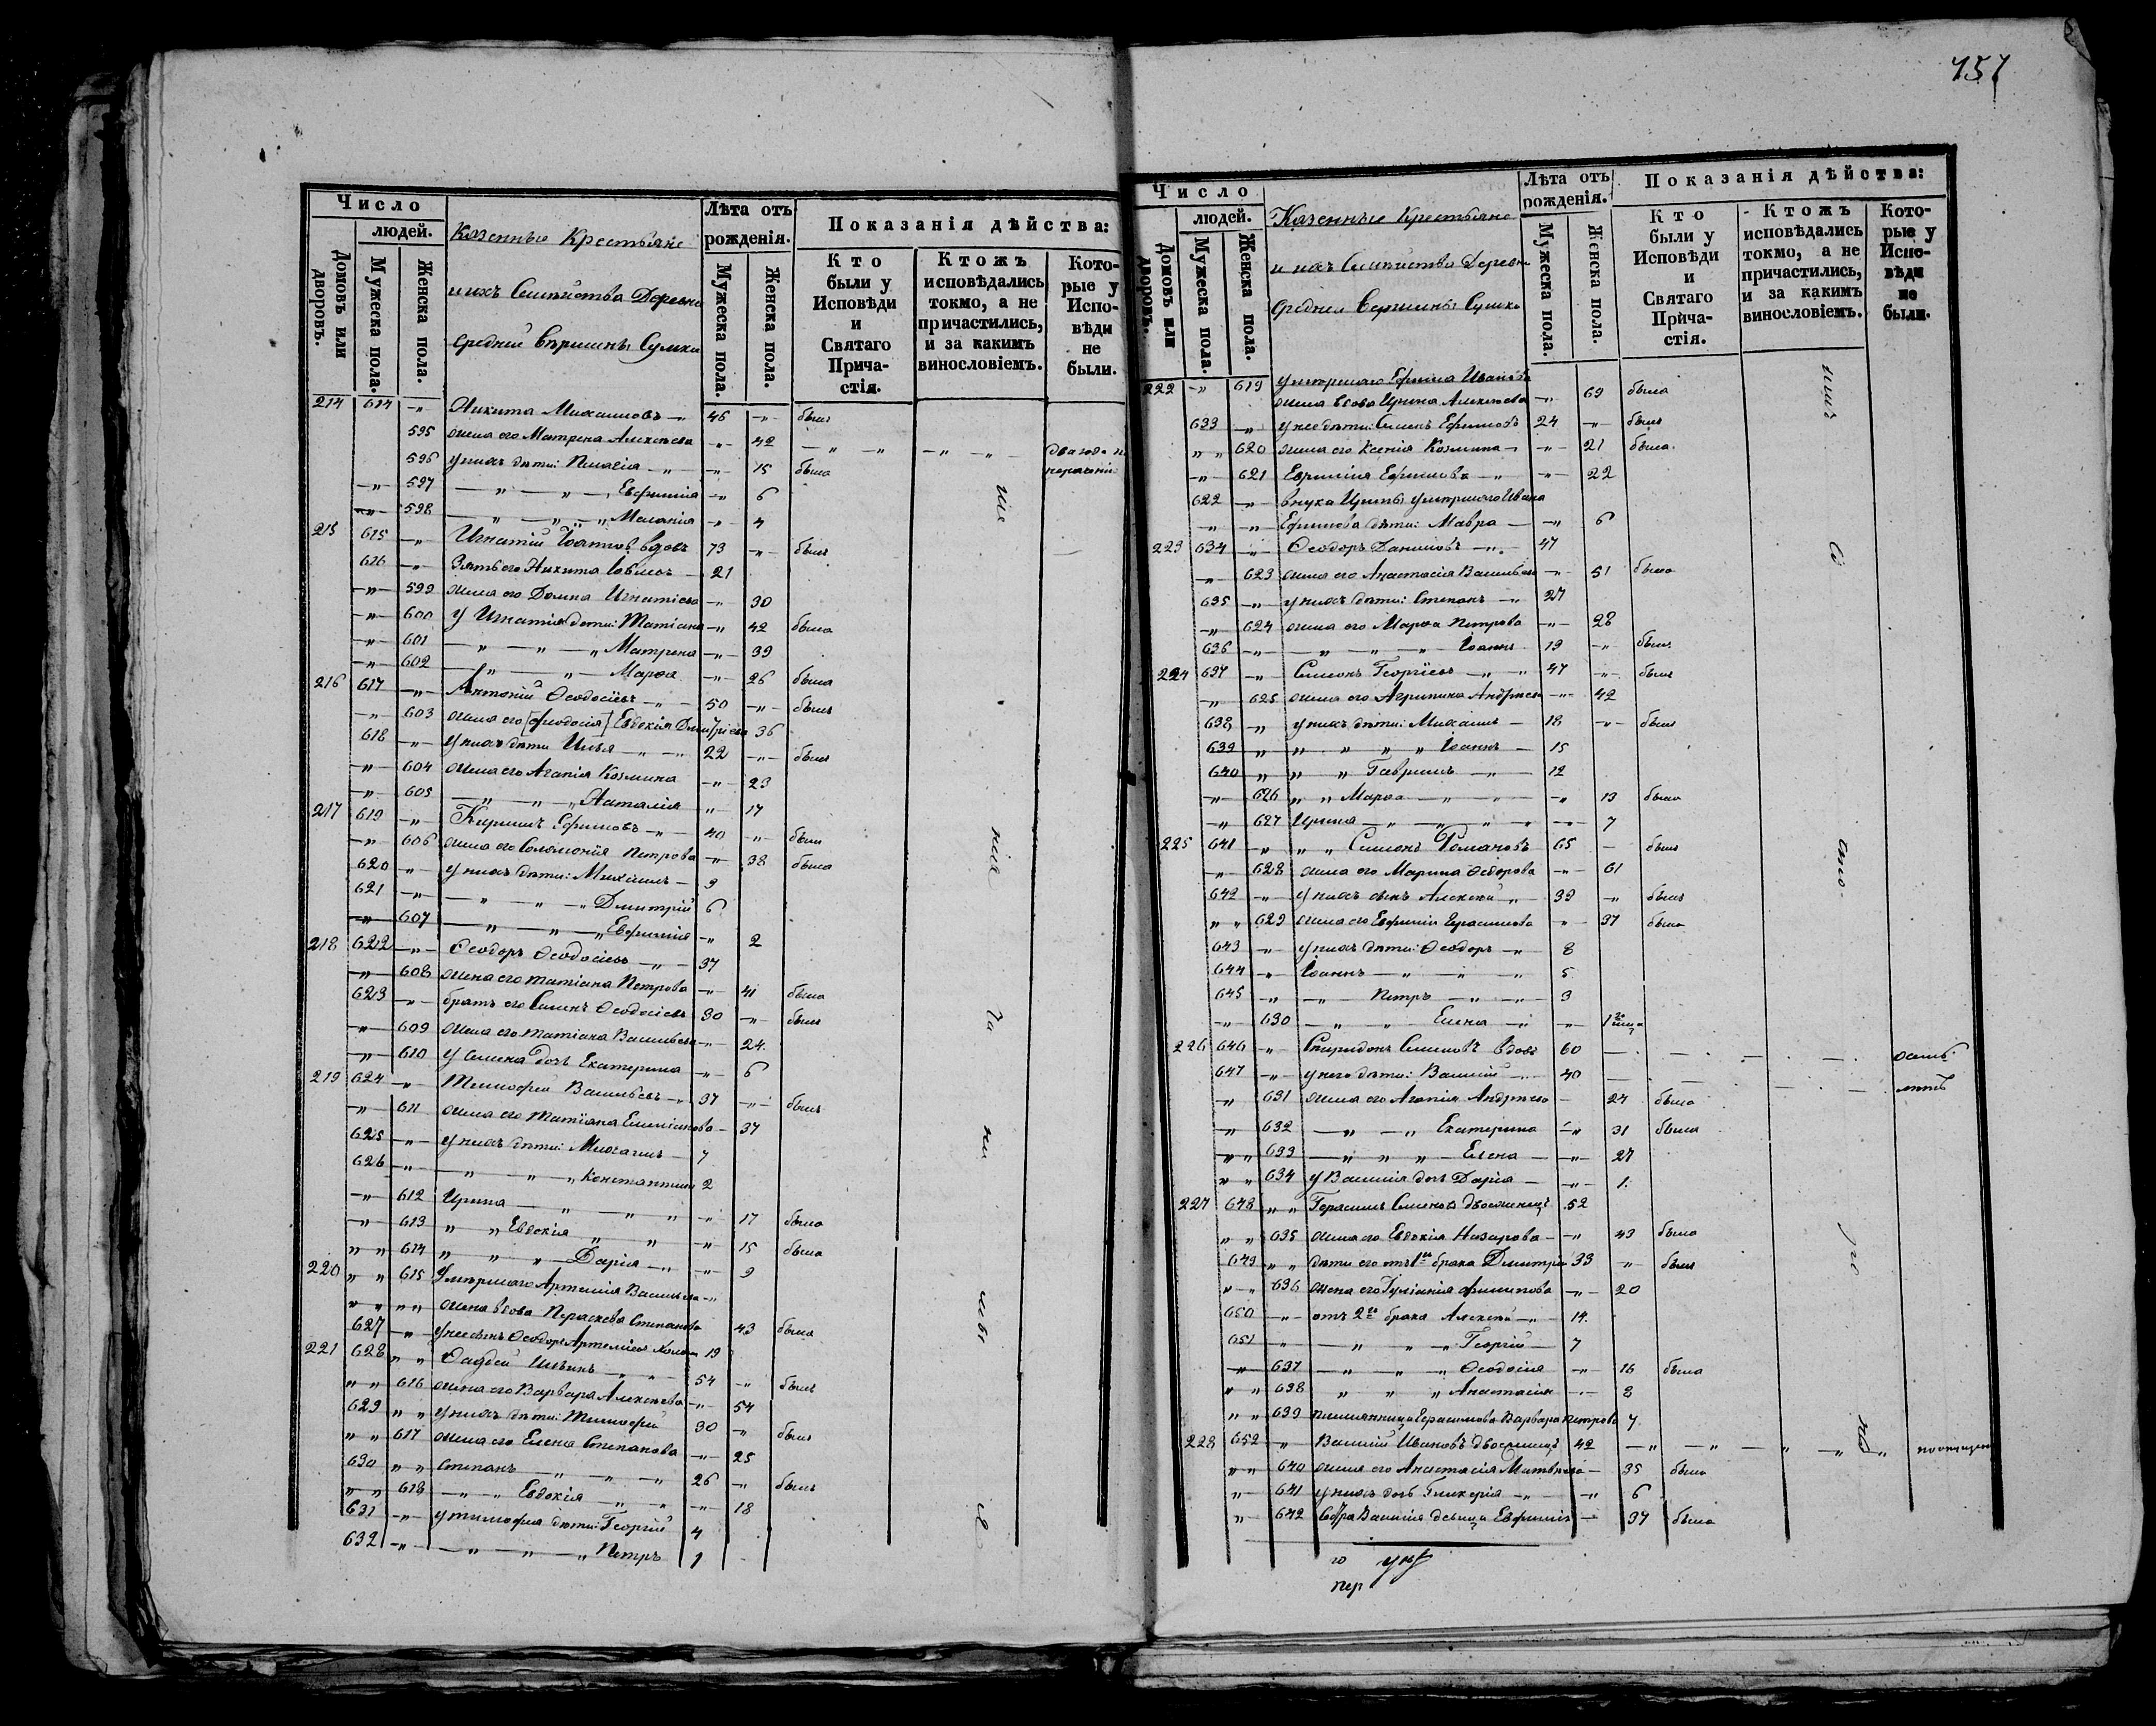 157
Число
людей.
Домовъ или дворовъ.
Мужеска пола.
Женска пола.
Казенные Крестьяне
и ихъ Семейства Деревни
Средней вершины Сумки
Лѣта отъ рожденія.
Мужеска пола.
Женска пола.
Показанія дѣйства:
Кто были у Исповѣди и Святаго Причастія.
Ктожъ исповѣдались токмо, а не причастились, и за какимъ винословіемъ.
Которые у Исповѣди не были.
214 614 -„- Никита Михаиловъ -„- 46 -„- былъ
595 жена его Матрена Алексѣева -„- 42 -„- -„- -„- -„- два года по
596 у нихъ дѣти: Пелагія -„- -„- 15 была
-„- 597 -„- -„- Евфимія -„- 6
-„- 598 -„- -„- Маланія -„- 4
215 615 -„- Игнатій Іоанновъ вдовъ 73 -„- былъ
616 -„- Зять его Никита 21
-„- 599 жена его Домна Игнатіева -„- 30
-„- 600 У Игнатія дѣти: Татіана -„- 42 была
-„- 601 -„- -„- Матрена -„- 39
-„- 602 -„- -„- Марѳа -„- 26 была
216 617 -„- Антоній Ѳеодосіевъ -„- 50 -„- былъ
-„- 603 жена его [Феодосія] Евдокія Дмитріева 36
618 -„- у нихъ дѣти Илья -„- -„- 22 -„- былъ
-„- 604 жена его Агапія Козмина -„- 23
-„- 605 -„- -„- Наталія -„- 17
217 619 -„- Кирилъ Ефимовъ -„- 40 -„- былъ
-„- 606 жена его Соломонія Петрова -„- 38 была
620 -„- у нихъ дѣти: Михаилъ - 9
621 -„- -„- -„- Дмитрій 6
-„- 607 -„- -„- Евфимія -„- 2
218 622 -„- Ѳеодоръ Ѳеодосіевъ -„- 37
-„- 608 жена его Татіана Петрова -„- 41 была
623 -„- братъ его Семенъ Ѳеодосіевъ 30 -„- былъ
-„- 609 жена его Татіана Васильева -„- 24
-„- 610 у Семена дочь Екатерина -„- 6
219 624 -„- Тимофей Васильевъ -„- 37 -„- былъ
-„- 611 жена его Татіана Емеліанова - 37
625 -„- у нихъ дѣти: Михаилъ - 7
626 -„- -„- -„- Константинъ 2
-„- 612 Ирина -„- -„- -„- 17 была
-„- 613 „ „ Евдокія „ „ -„- 15 была
„ „ 614 „ „ „ Дарія -„- -„- 9
220 „ „ 615 Умершаго Артемія Васильева -„-
„ „ „ „ жена вдова Параскева Степанова 43 была
627 -„- у нее сынъ Ѳеодоръ Артеміевъ холост 19
221 628 „ „ Фаддей Ильинъ 54 -„- былъ
„ „ 616 жена его Варвара Алексѣева -„- 54
629 „ „ у нихъ дѣти: Тимофей 30 -„- былъ
„ „ 617 жена его Елена Степанова -„- 25
630 „ „ Степанъ -„- -„- 26 -„- былъ
„ „ 618 -„- „ Евдокія -„- -„- 18
631 -„- у Тимофея дѣти: Георгій 4
632 -„- -„- -„- Петръ 1
Число
людей.
Домовъ или дворовъ.
Мужеска пола.
Женска пола.
Казенные Крестьяне
и ихъ Семейства Деревни
Средней Вершины Сумки
Лѣта отъ рожденія.
Мужеска пола.
Женска пола.
Показанія дѣйства:
Кто были у Исповѣди и Святаго Причастія.
Ктожъ исповѣдались токмо, а не причастились, и за какимъ винословіемъ.
Которые у Исповѣди не были.
222 -„- 619 умершаго Ефима Иванова
жена вдова Ирина Алексѣева -„- 69 была
633 -„- у нее дѣти: Семенъ Ефимовъ 24 -„- былъ
„ „ 620 жена его Ксенія Козмина -„- 21 была
-„- 621 Ефимія Ефимова -„- -„- 22
622 -„- внука Ирины умершаго Ивана
-„- -„- Ефимова дѣти: Мавра -„- 6
223 634 -„- Ѳеодоръ Даниловъ -„- 47
-„- 623 жена его Анастасія Васильева -„- 51 была
635 -„- у нихъ дѣти: Степанъ -„- 27
-„- 624 жена его Марѳа Петрова -„- 28
636 -„- -„- -„- Іоаннъ 19 -„- былъ
224 637 -„- Симеонъ Георгіевъ -„- 47 -„- былъ
-„- 625 жена его Агрипина Андреева -„- 42
638 -„- у нихъ дѣти: Михаилъ - 18 -„- былъ
639 „ „ „ „ Іоаннъ - 15
640 „ „ „ Гавріилъ -„- 12
-„- 626 „ „ Марѳа -„- -„- 13 была
-„- 627 Ирина -„- -„- -„- 7
225 641 -„- „ „ Симеонъ Романовъ 65 - былъ
-„- 628 жена его Марина Ѳедорова -„- 61
642 -„- у нихъ сынъ Алексѣй -„- 39 -„- былъ
„ „ 629 жена его Евфимія Герасимова -„- 37 была
643 -„- у нихъ дѣти: Ѳеодоръ -„- 8
644 -„- Іоаннъ -„- -„- 5
645 -„- -„- Петръ -„- -„- 3
-„- 630 -„- -„- Елена -„- -„- 1
226 646 -„- Спиридонъ Семеновъ вдовъ 60 - - - - осемь
647 -„- у него дѣти: Василій -„- 40 - - - - лѣтъ
-„- 631 жена его Агапія Андреева - 24 была
-„- 632 -„- -„- Екатерина -„- 31 была
„ „ 633 -„- „ „ Елена -„- 27
„ „ 634 у Василія дочь Дарія -„- 1
227 648 „ „ Герасимъ Семеновъ двоеженецъ 52
„ „ 635 жена его Евдокія Назарова -„- 43 была
649 „ „ дѣти его отъ 1го брака Дмитрій 33 -„- былъ
„ „ 636 жена его Іуліанія Филипова -„- 20
650 -„- отъ 2го брака Алексѣй -„- 14
651 -„- -„- -„- Георгій - 7
-„- 637 -„- -„- Ѳеодосія -„- 16 была
„ „ 638 „ „ „ Анастасія -„- 8
„ „ 639 племянница Герасимова Варвара Петрова 7
228 652 -„- Василій Ивановъ двоеженецъ 42 -„- -„- -„- -„-
„ „ 640 жена его Анастасія Матвѣева - 35 была
-„- 641 у нихъ дочь Гликерія -„- -„- 6
-„- 642 сестра Василія девица Евфимія -„- 37 была